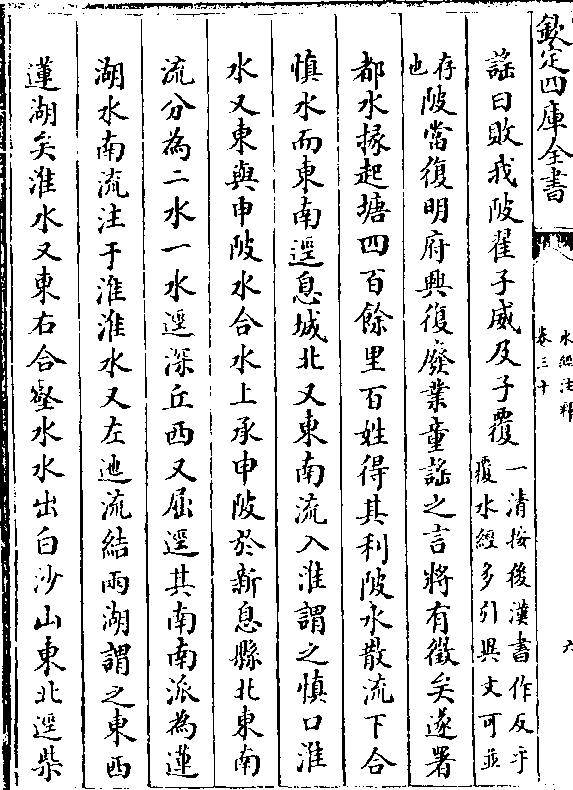 欽定四庫全書
水經注釋
卷三十
六
謡曰敗我陂翟子威反乎覆一清按後漢書作反乎
覆水經多引異文可並
存也陂當復明府興復廢業童謡之言將有徵矣遂署
都水掾起塘四百餘里百姓得其利陂水散流下合
慎水而東南逕息城北又東南流入淮謂之慎口淮
水又東與申陂水合水上承申陂於新息縣北東南
流分為二水一水逕深丘西又屈逕其南南派為蓮
湖水南流注于淮淮水又左迆流結兩湖謂之東西
蓮湖矣淮水又東右合壑水水出白沙山東北逕柴